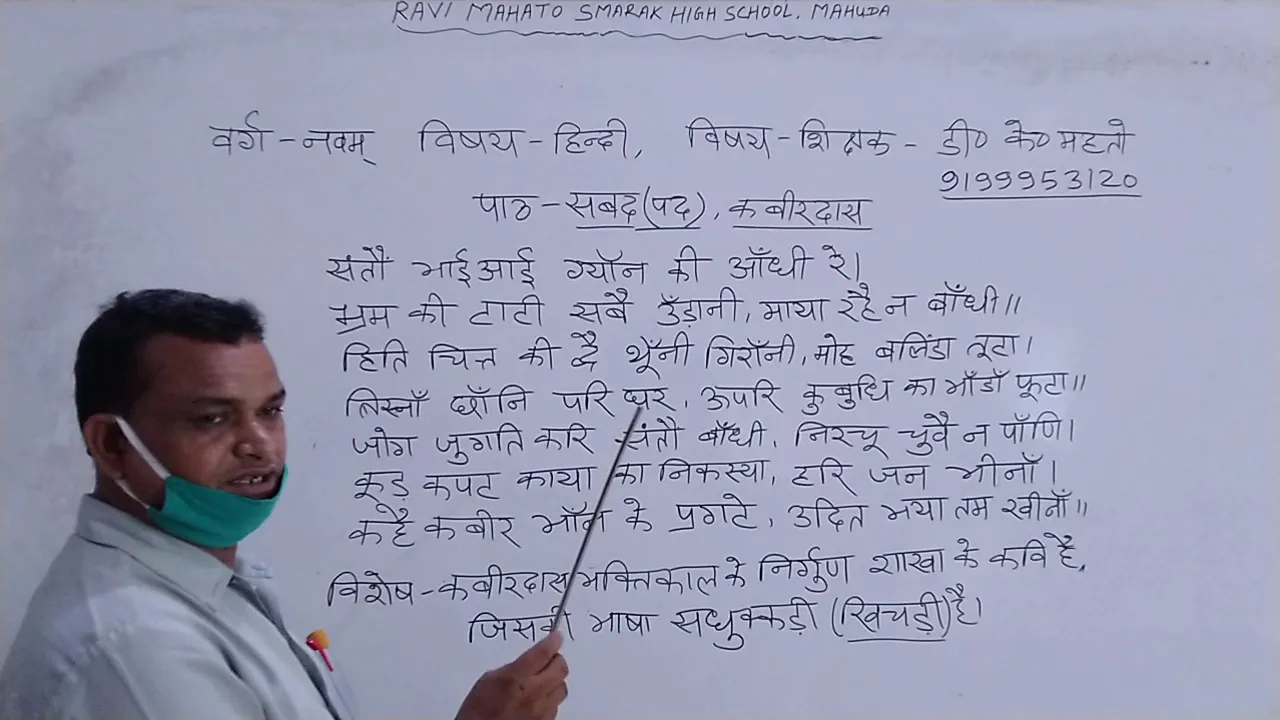 RAVI MAHATO SMARAK HIGH SCHOOL, MAHUDA
वर्ग - नवम् विषय - हिन्दी, विषय - शिक्षक - डी० के० महतो
9199953120
पाठ - सबद (पद), कबीरदास
संतौ भाई आई ग्याँन की आँधी रे।
भ्रम की टाटी सबै उँड़ानी, माया रहै न बाँधी॥
हिति चित्त की द्वै थूँनी गिराँनी, मोह बलिंडा तूटा।
तिस्नाँ छाँनि परि घर, ऊपरि कुबुधि का भाँडाँ फूटा॥
जोग जुगति करि संतौ बाँधी, निरचू चुवै न पाँणि।
कूड़ कपट काया का निकस्या, हरि जन भीनाँ।
कहै कबीर भाँन के प्रगटे, उदित भया तम खीनाँ॥
विशेष - कबीरदास भक्तिकाल के निर्गुण शाखा के कवि है,
जिसकी भाषा सधुक्कड़ी (खिचड़ी) है।